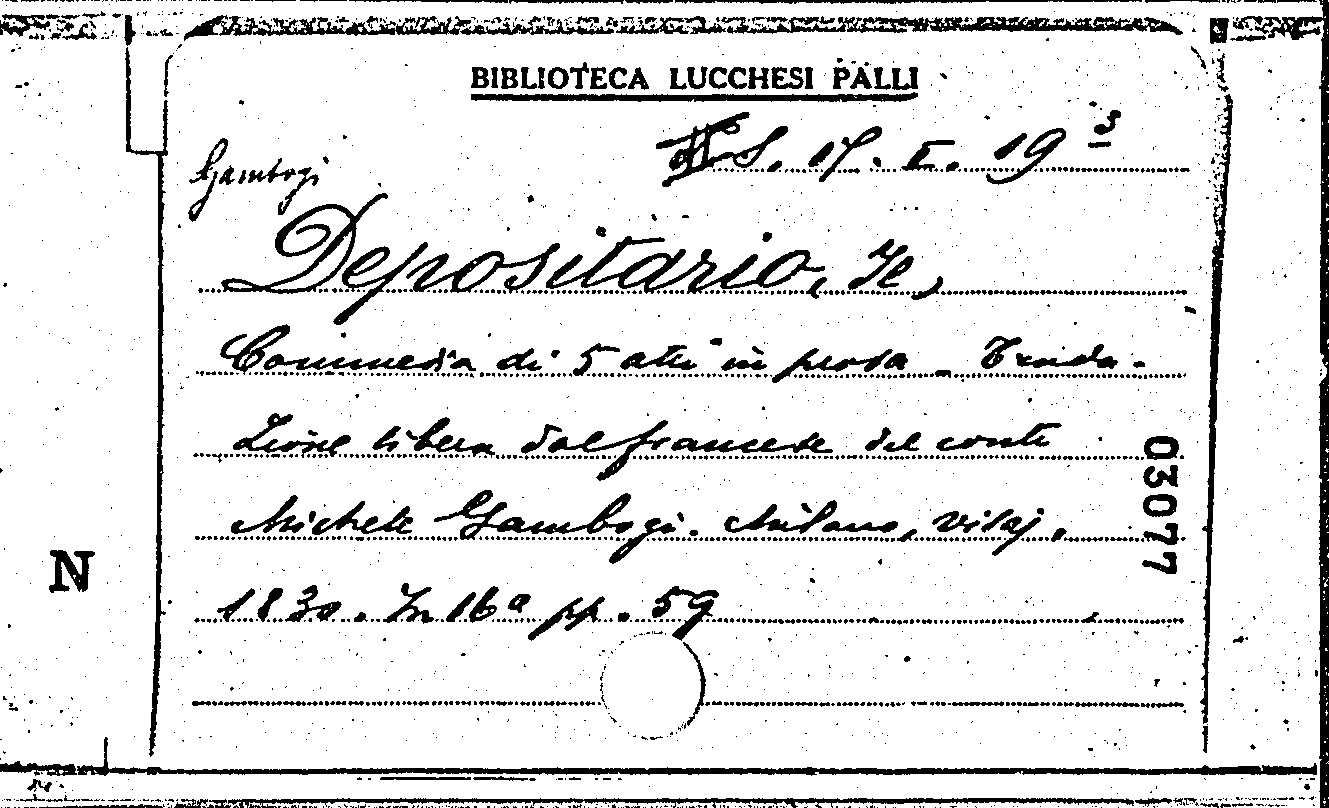 BIBLIOTECA LUCCHESI PALLI
S. 17. I. 19 3
Gambogi
Depositario, Il,
Commedia di 5 atti in prosa - Tradu-
zione libera dal francese del conte
Michele Gambogi. Milano, Visaj,
1830. In 16° pp. 59
03077
N